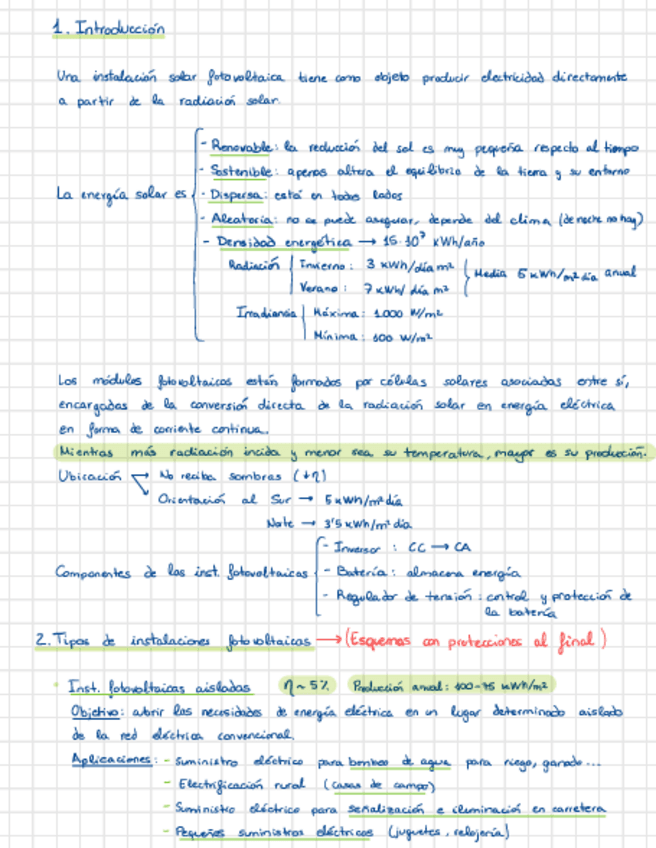 1. Introducción
Una instalación solar fotovoltaica tiene como objeto producir electricidad directamente
a partir de la radiación solar.
- Renovable: la reducción del sol es muy pequeña respecto al tiempo
- Sostenible: apenas altera el equilibrio de la tierra y su entorno
La energía solar es - Dispersa: está en todos lados
- Aleatoria: no se puede asegurar, depende del clima (de noche no hay)
- Densidad energética → 15·10⁷ kWh/año
Radiación Invierno: 3 kWh/día m²
Verano: 7 kWh/día m²
Media 5 kWh/m² día anual
Irradiancia Máxima: 1.000 W/m²
Mínima: 100 W/m²
Los módulos fotovoltaicos están formados por células solares asociadas entre sí,
encargadas de la conversión directa de la radiación solar en energía eléctrica
en forma de corriente continua.
Mientras más radiación incida y menor sea su temperatura, mayor es su producción.
Ubicación → No reciba sombras (↓η)
Orientación al Sur → 5 kWh/m² día
Norte → 3'5 kWh/m² día
- Inversor : CC → CA
Componentes de las inst. fotovoltaicas - Batería: almacena energía
- Regulador de tensión: control y protección de
la batería
2. Tipos de instalaciones fotovoltaicas → (Esquemas con protecciones al final)
· Inst. fotovoltaicas aisladas η ~ 5% Producción anual: 100-75 kWh/m²
Objetivo: cubrir las necesidades de energía eléctrica en un lugar determinado aislado
de la red eléctrica convencional.
Aplicaciones: - Suministro eléctrico para bombeo de agua para riego, ganado...
- Electrificación rural (casas de campo)
- Suministro eléctrico para señalización e iluminación en carretera
- Pequeños suministros eléctricos (juguetes, relojería)